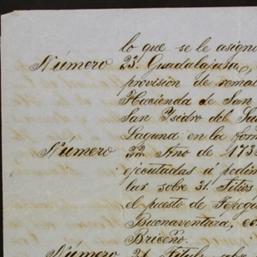 lo que se le asign
Número 23. Guadalajara,
provision de rema
Hacienda de San
San Ysidro del
Laguna en la for
Número 32. Año de 173
ejecutadas á pedim
las sobre 31. Sitios
el puesto de
Buenaventura,
Briceño.
Número